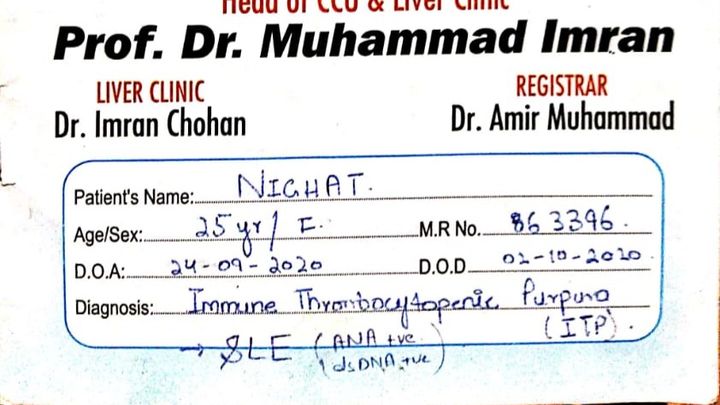 Head of CCU & Liver Clinic
Prof. Dr. Muhammad Imran
LIVER CLINIC REGISTRAR
Dr. Imran Chohan Dr. Amir Muhammad
Patient's Name: NIGHAT.
Age/Sex: 25 yr / F. M.R No. 863396.
D.O.A: 24-09-2020 D.O.D 02-10-2020.
Diagnosis: Immune Thrombocytopenic Purpura
(ITP).
→ SLE (ANA +ve
dsDNA +ve)